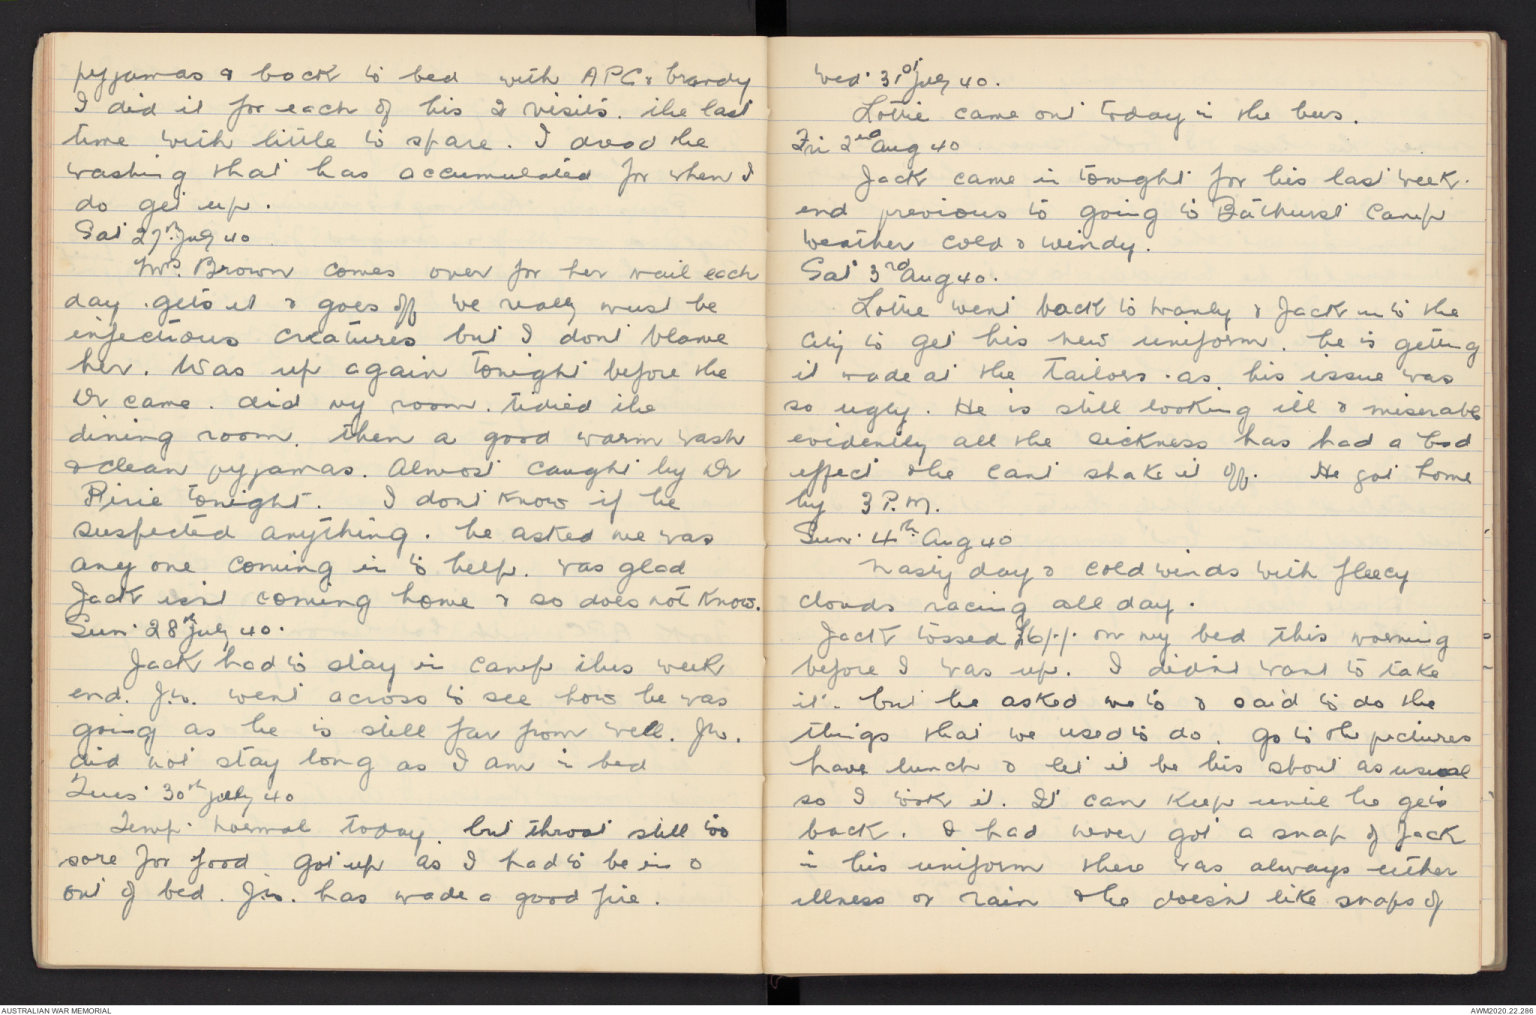 pyjamas & back to bed with APC & brandy
I did it for each of his 2 visits. the last
time with little to spare. I dread the
washing that has accumulated for when I
do get up.
Sat 27th July 40
Mrs. Brown comes over for her mail each
day. gets it & goes off we really must be
infectious creatures but I dont blame
her. Was up again tonight before the
Dr came. did my room. tidied the
dining room. then a good warm wash
& clean pyjamas. Almost caught by Dr
Pirie tonight. I dont know if he
suspected anything. he asked me was
any one coming in to help. was glad
Jack isnt coming home & so does not know.
Sun. 28th July 40.
Jack had to stay in camp this week
end. Jw. went across to see how he was
going as he is still far from well. Jw.
did not stay long as I am in bed
Tues 30th July 40
Temp. normal today but throat still too
sore for food got up as I had to be in &
out of bed. Jw. has made a good fire.
Wed. 31st July 40.
Lottie came out today in the bus.
Fri 2nd Aug 40
Jack came in tonight for his last week.
end previous to going to Bathurst Camp
Weather cold & windy.
Sat 3rd Aug 40.
Lottie went back to Manly & Jack in to the
City to get his new uniform. he is getting
it made at the tailors. as his issue was
so ugly. He is still looking ill & miserable
evidently all the sickness has had a bad
effect & he cant shake it off. He got home
by 3 P.M.
Sun. 4th Aug 40
Nasty day & cold winds with fleecy
clouds racing all day.
Jack tossed £6/-/- on my bed this morning
before I was up. I didnt want to take
it. but he asked me to & said to do the
things that we used to do. go to the pictures
have lunch & let it be his shout as usual
so I took it. It can keep until he gets
back. I had never got a snap of Jack
in his uniform there was always either
illness or rain & he doesnt like snaps of
AUSTRALIAN WAR MEMORIAL
AWM2020.22.286